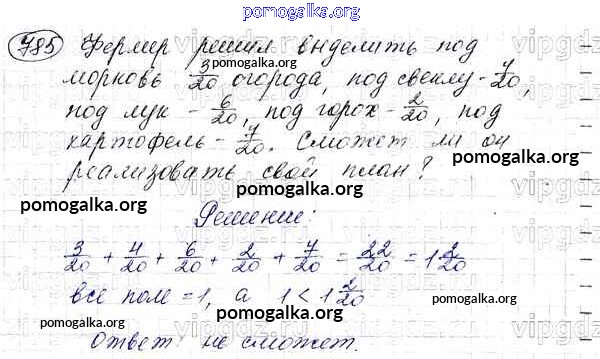 pomogalka.org
785 Фермер решил выделить под
морковь 3/20 огорода, под свеклу - 4/20,
под лук - 6/20, под горох - 2/20, под
картофель - 7/20. Сможет ли он
реализовать свой план?
pomogalka.org
pomogalka.org
pomogalka.org
Решение:
3/20 + 4/20 + 6/20 + 2/20 + 7/20 = 22/20 = 1 2/20
все поле = 1, а 1 < 1 2/20
pomogalka.org
pomogalka.org
Ответ: не сможет.
pomogalka.org